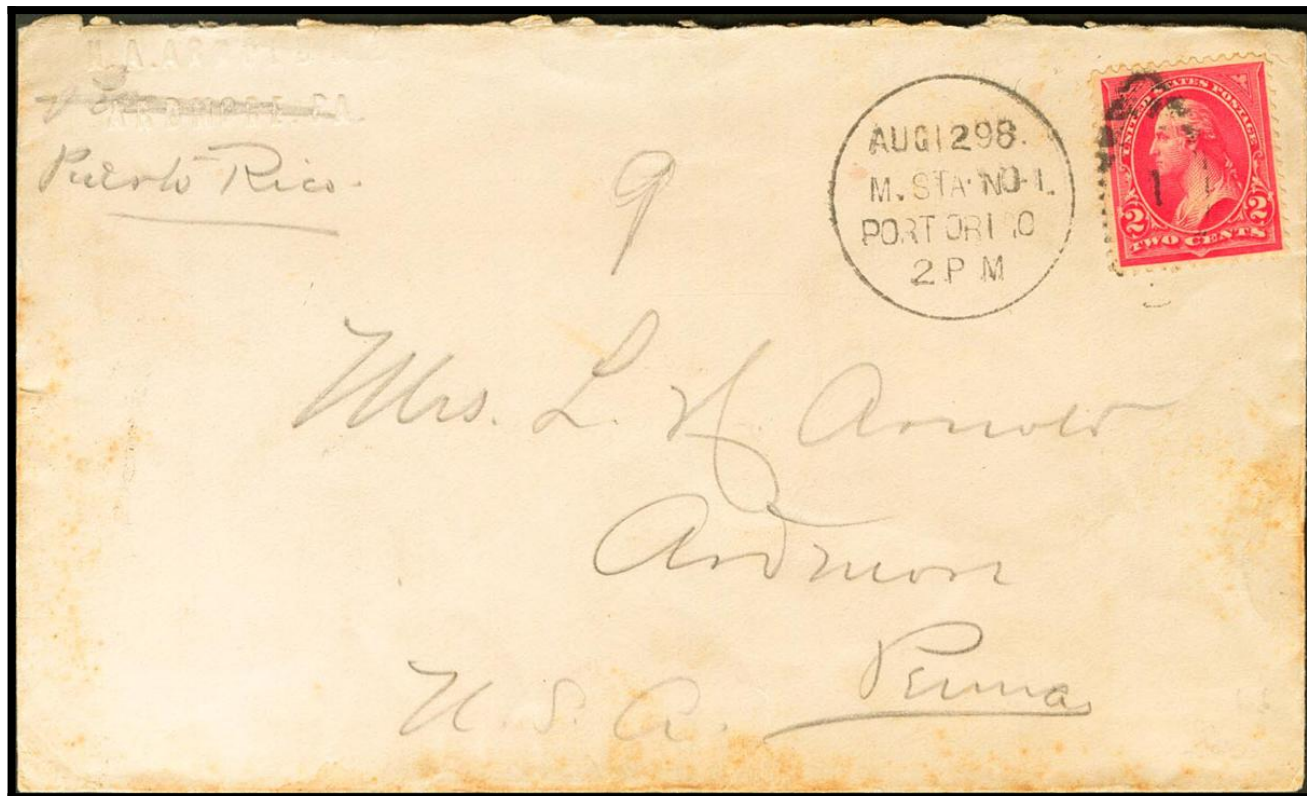 Puerto Rico.
9
AUG 12 98.
M. STA. NO-1.
PORTO RI O
2 P M
UNITED STATES POSTAGE
1
2 2
TWO CENTS
Mrs. L. H. Arnold
Ardmore
Penna
U. S. A.